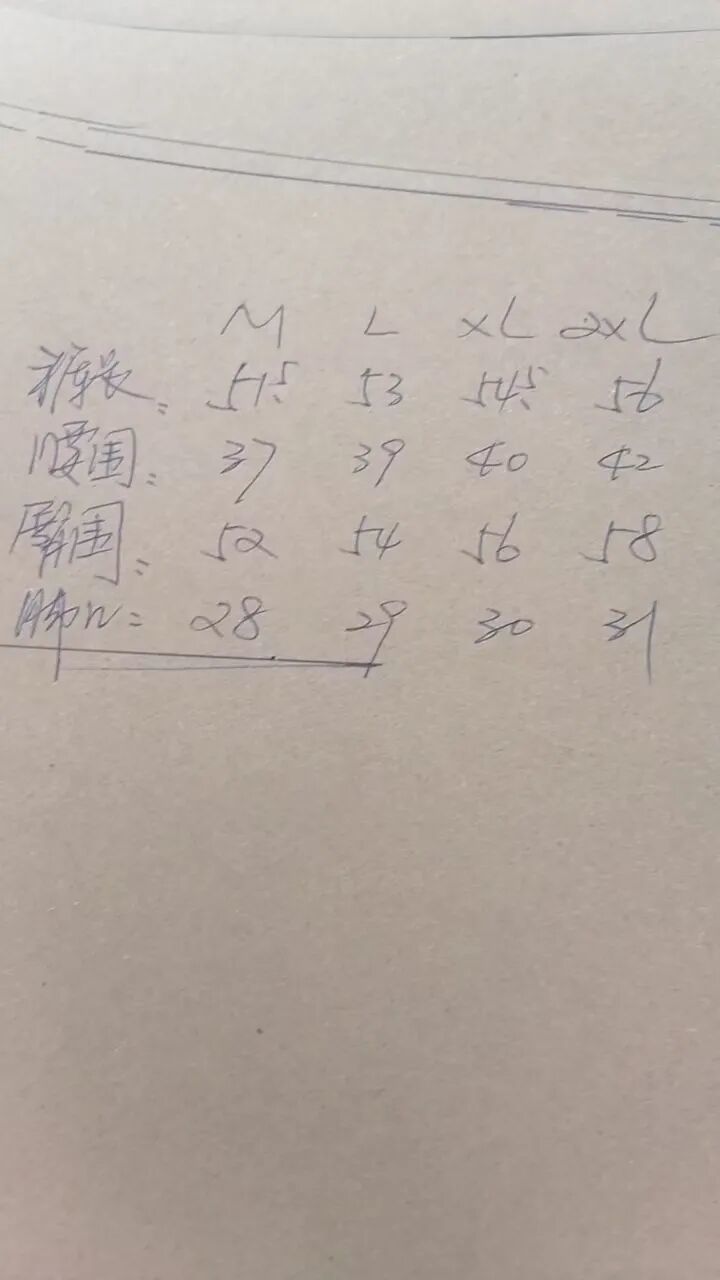 M L XL 2XL
裤长: 51.5 53 54.5 56
腰围: 37 39 40 42
臀围: 52 54 56 58
脚口: 28 29 30 31